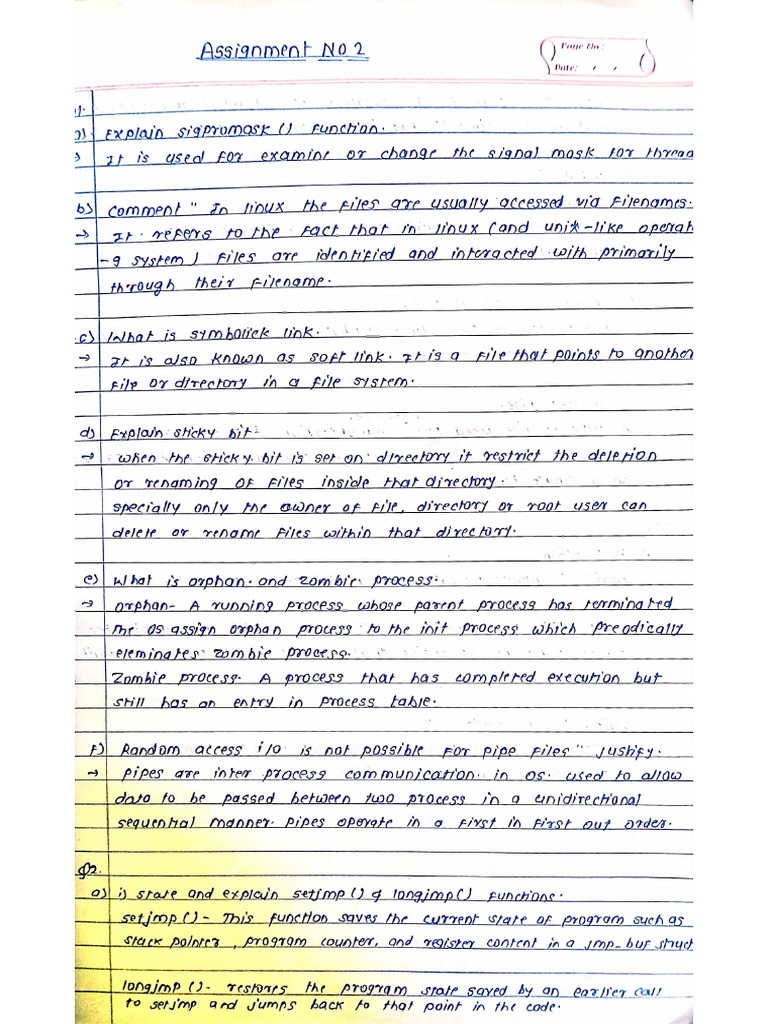 Assignment No 2
Page No:
Date: , ,
1.
a) Explain sigpromask () function.
→ It is used for examine or change the signal mask for thread
b) Comment " In linux the files are usually accessed via Filenames.
→ It refers to the fact that in linux (and unix-like operat
-g system) files are identified and interacted with primarily
through their Filename.
c) What is symbolick link.
→ It is also known as soft link. It is a file that points to another
file or directory in a file system.
d) Explain sticky bit
→ when the sticky bit is set on directory it restrict the deletion
or renaming of files inside that directory.
specially only the owner of file, directory or root user can
delete or rename files within that directory.
e) What is orphan. and zombie process.
→ orphan- A running process whose parent process has terminated
The os assign orphan process to the init process which preodically
eleminates zombie process.
Zombie process. A process that has completed execution but
still has an entry in process table.
f) Random access i/o is not possible for pipe files" Justify.
→ pipes are inter process communication in os. used to allow
data to be passed between two process in a unidirectional
sequential manner. pipes operate in a first in first out order.
Q2.
a) i) state and explain setjmp() & longjmp() functions.
setjmp() - This function saves the current state of program such as
stack pointer, program counter, and register content in a jmp_buf struct
longjmp()- restores the program state saved by an earlier call
to setjmp and jumps back to that point in the code.